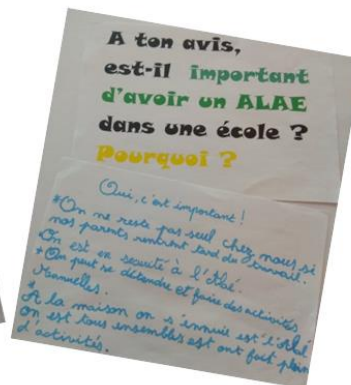 A ton avis,
est-il important
d'avoir un ALAE
dans une école ?
Pourquoi ?
Oui, c'est important !
*On ne reste pas seul chez nous si
nos parents rentrent tard du travail.
On est en securité à l'Alaé.
*On peut se détendre et faire des activités
Manuelles.
*
A la maison on s'ennuie est l'Alaé
on est tous ensembles est ont fait plein
d'activités.